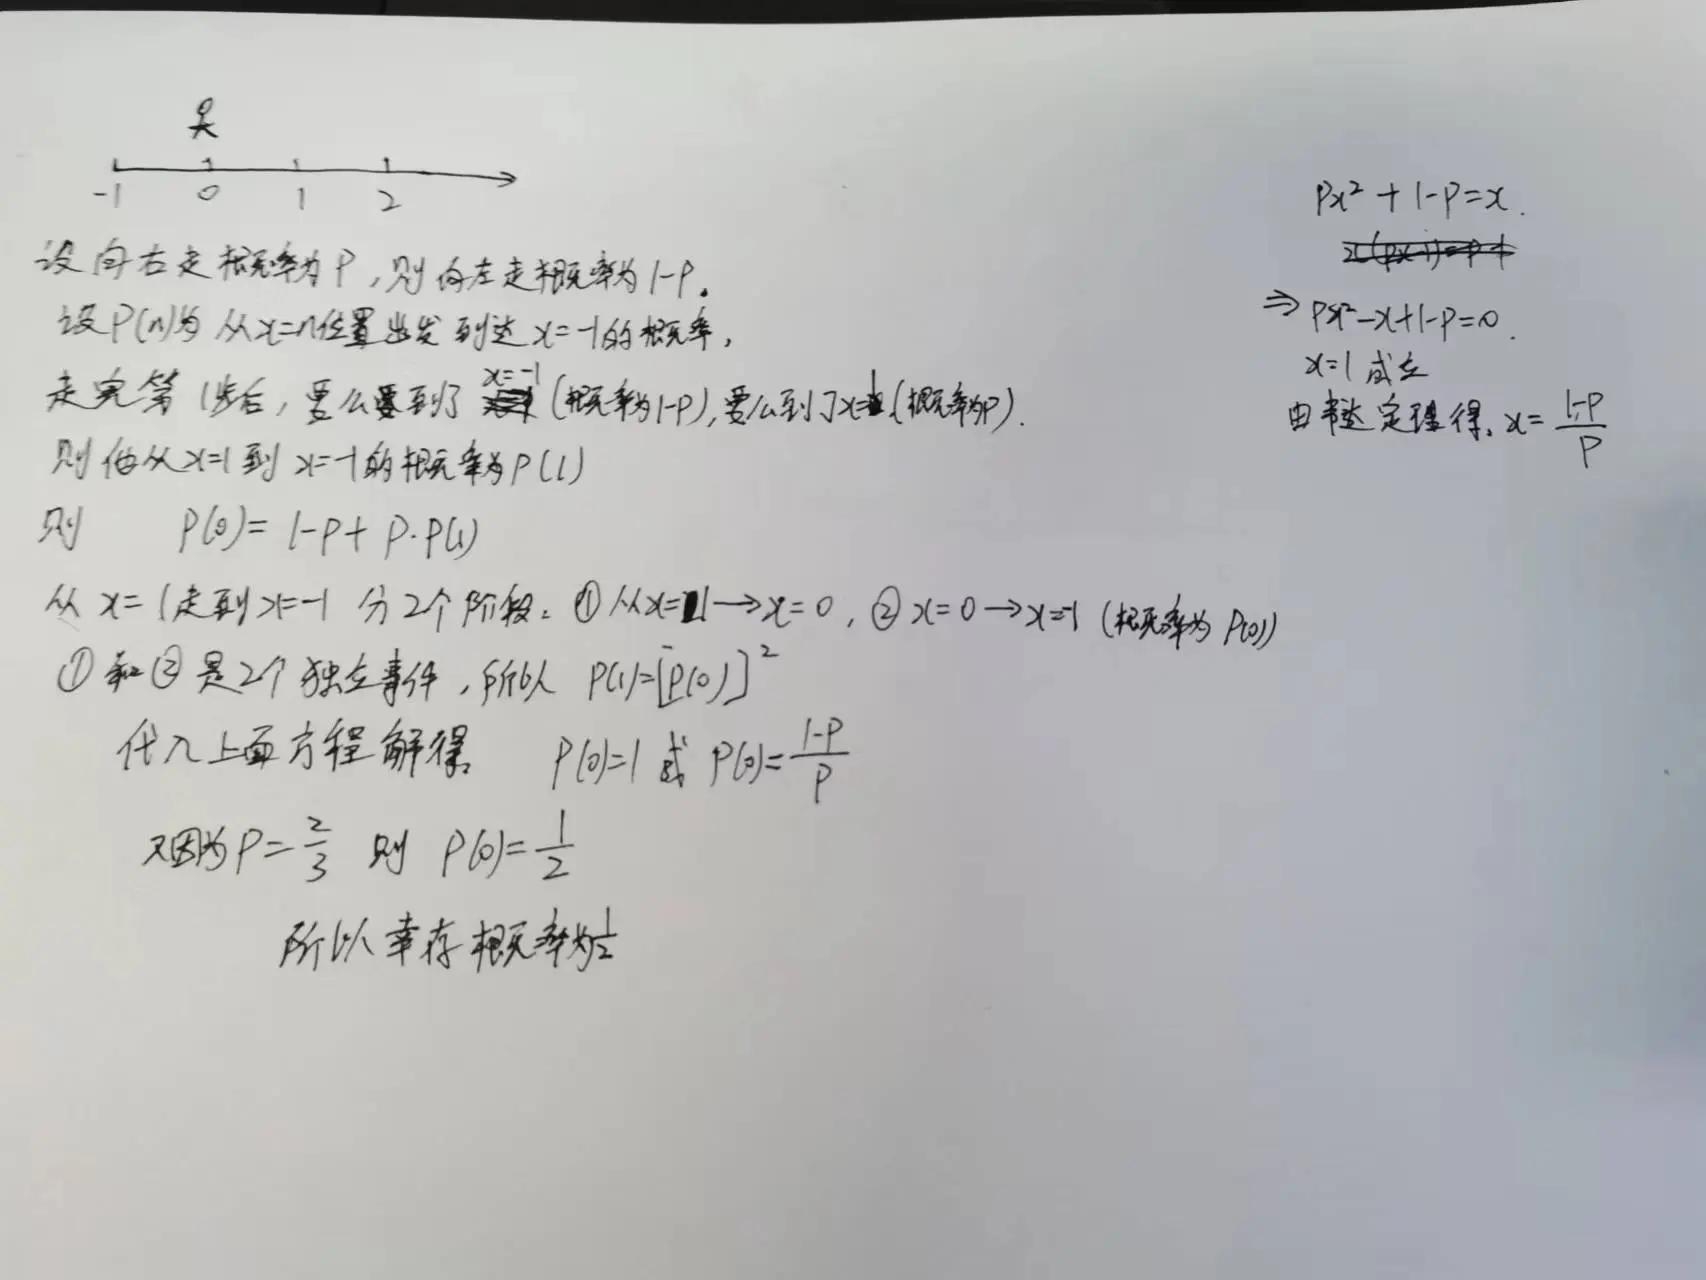 -1 0 1 2
设向右走概率为P,则向左走概率为1-P.
设P(n)为从x=n位置出发到达x=-1的概率,
走完第1步后,要么要到了x=-1(概率为1-P),要么到了x=1.(概率为P).
则他从x=1到x=-1的概率为P(1)
则 P(0)=1-P+P·P(1)
从x=1走到x=-1分2个阶段:①从x=1→x=0,②x=0→x=-1(概率为P(0))
①和②是2个独立事件,所以 P(1)=[P(0)]²
代入上面方程解得 P(0)=1或P(0)=\frac{1-P}{P}
又因为P=\frac{2}{3} 则 P(0)=\frac{1}{2}
所以幸存概率为\frac{1}{2}
Px²+1-P=x.
⇒Px²-x+1-P=0.
x=1成立
由韦达定理得,x=\frac{1-P}{P}